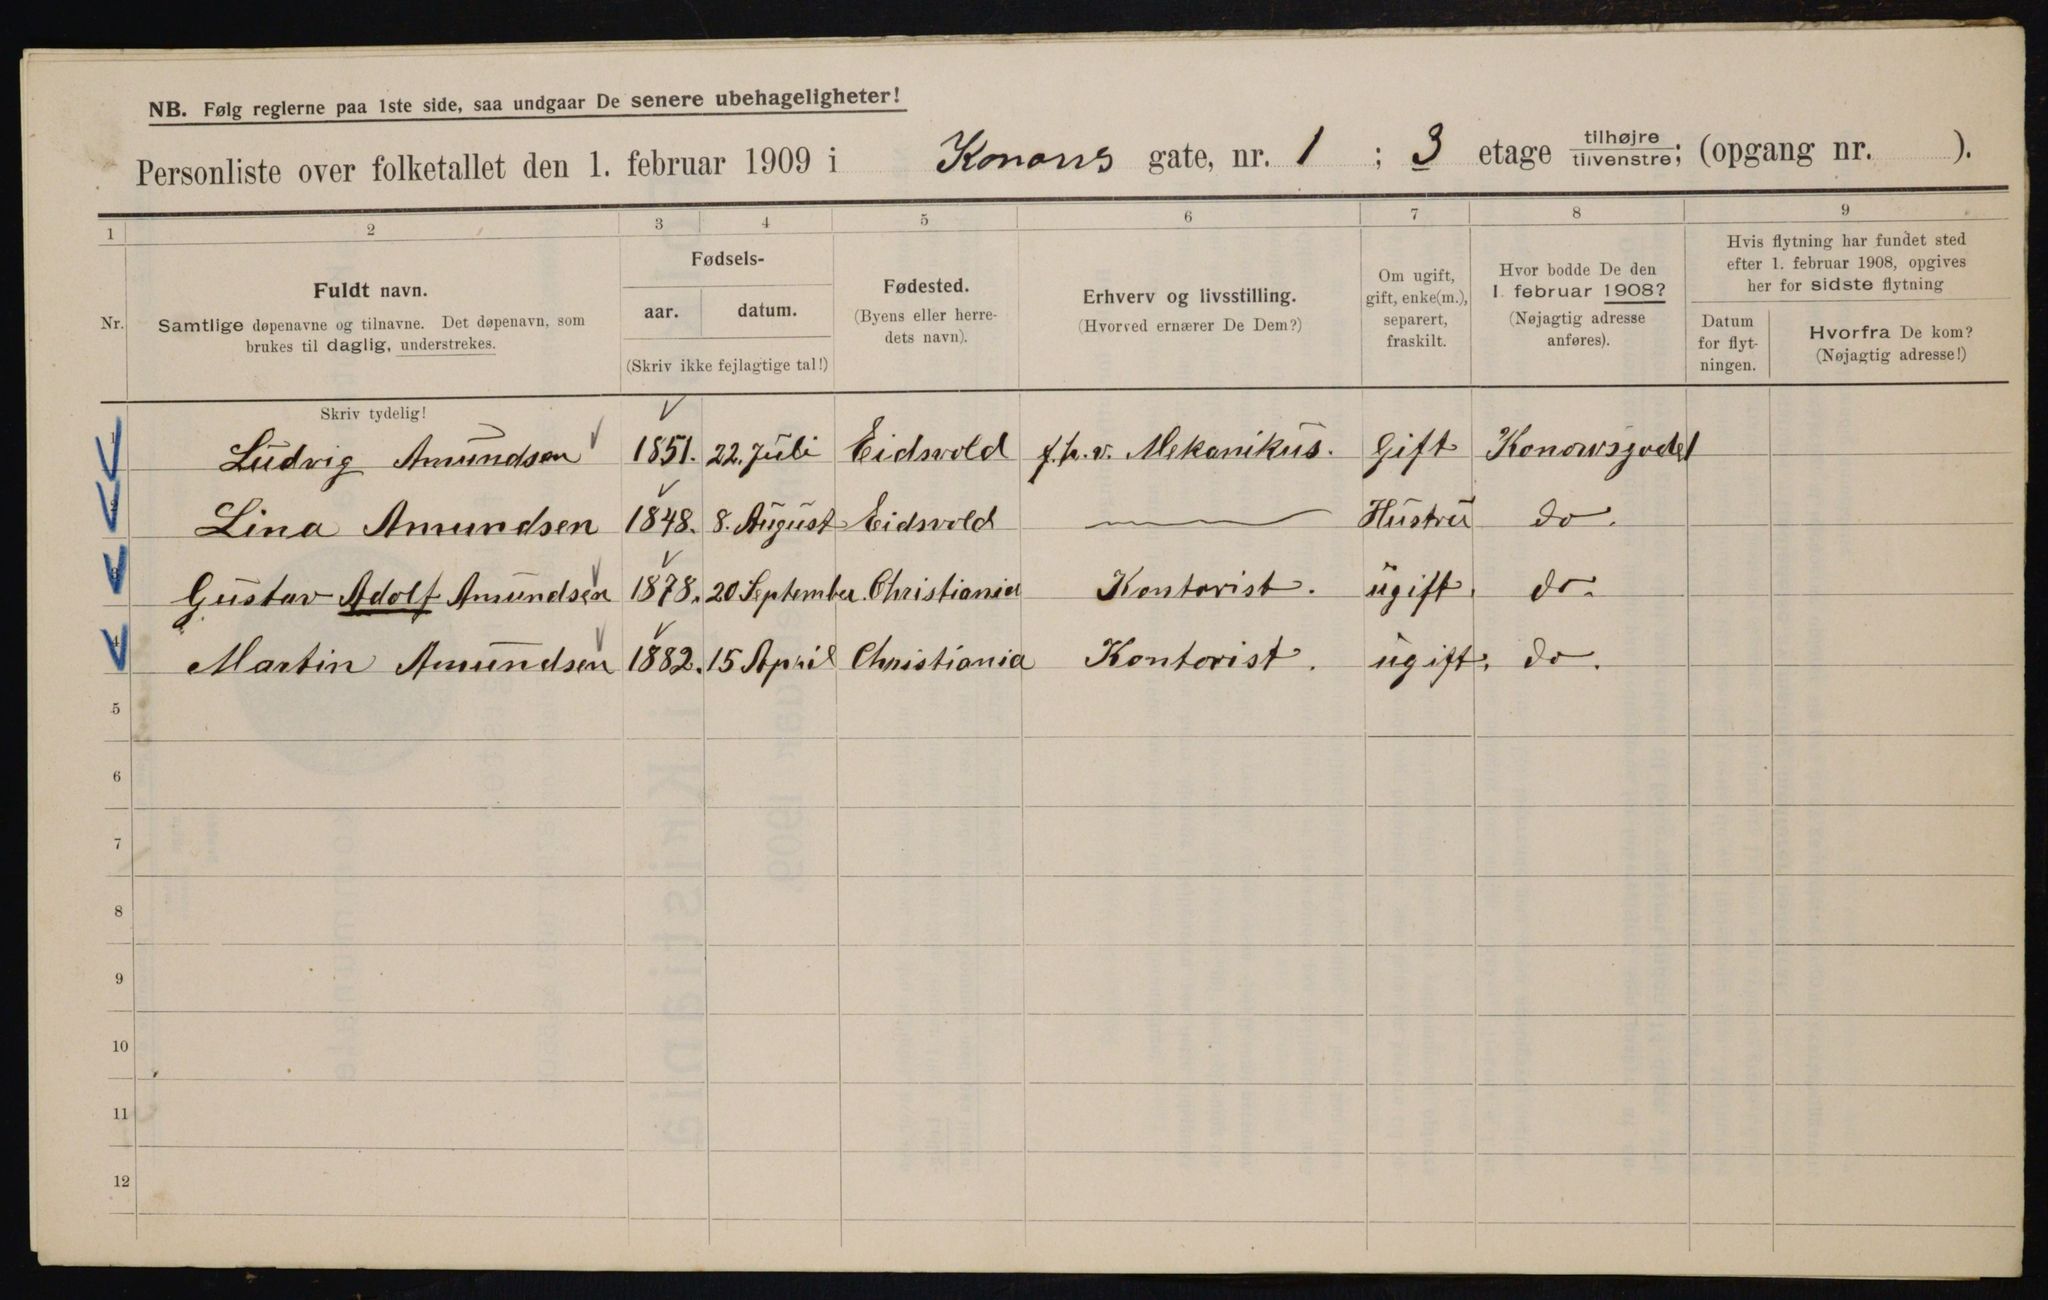 NB. Følg reglerne paa 1ste side, saa undgaar De senere ubehageligheter!
Personliste over folketallet den 1. februar 1909 i Konows gate, nr. 1 ; 3 etage tilhøjre tilvenstre; (opgang nr. ).
1 2 3 4 5 6 7 8 9
Nr.
Fuldt navn.
Samtlige døpenavne og tilnavne. Det døpenavn, som
brukes til daglig, understrekes.
Fødsels-
aar. datum.
(Skriv ikke fejlagtige tal!)
Fødested.
(Byens eller herre-
dets navn).
Erhverv og livsstilling.
(Hvorved ernærer De Dem?)
Om ugift,
gift, enke(m.),
separert,
fraskilt.
Hvor bodde De den
1. februar 1908?
(Nøjagtig adresse
anføres).
Hvis flytning har fundet sted
efter 1. februar 1908, opgives
her for sidste flytning
Datum
for flyt-
ningen.
Hvorfra De kom?
(Nøjagtig adresse!)
Skriv tydelig!
1 Ludvig Amundsen 1851. 22. Juli Eidsvold f.h.v. Mekanikus. Gift Konowsgade 1
2 Lina Amundsen 1848. 8. August Eidsvold Hustru do.
3 Gustav Adolf Amundsen 1878. 20 September Christiania Kontorist. ugift. do.
4 Martin Amundsen 1882. 15 April Christiania Kontorist. ugift. do.
5
6
7
8
9
10
11
12